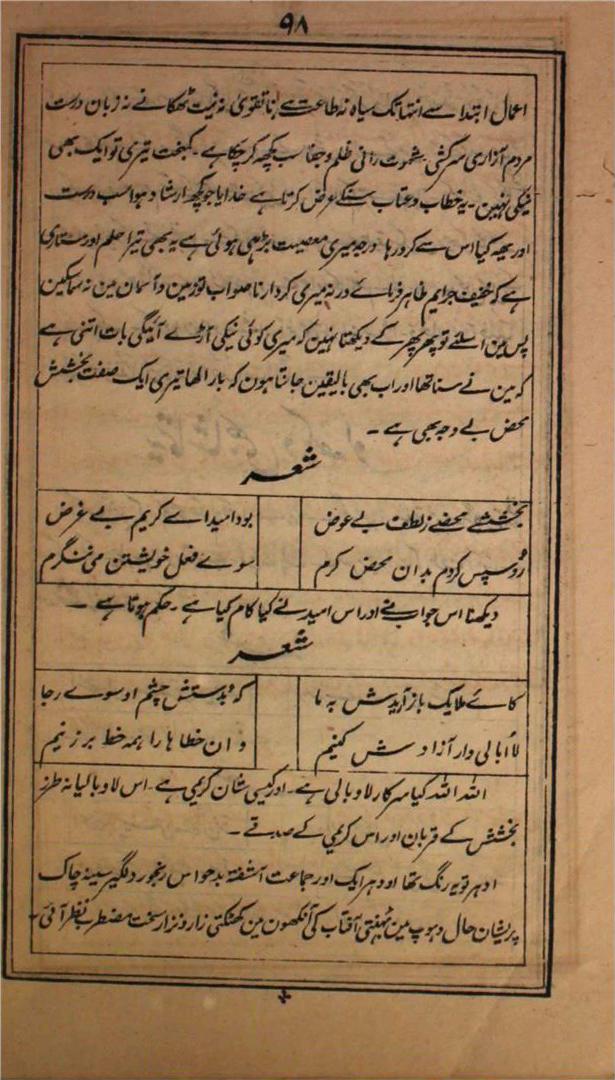 ۹۸
اعمال ابتدا سے انتہا تک سیاہ نہ طاعت ہے نا تقویٰ نہ نیت ٹھکانے نہ زبان درست
مردم آزاری سرکشی شہوت رانی ظلم و جفا سب کچھ کر چکا ہے۔ کمبخت تیری تو ایک بھی
نیکی نہین۔ یہ خطاب و عتاب سنکے عرض کرتا ہے خدایا جو کچھ ارشاد ہوا سب درست
اور بھیہ کیا اس سے کرورہا درجہ میری معصیت بڑھی ہوئی ہے یہ بھی تیرا حلم اور ستاری
ہے کہ خفیف جرایم ظاہر فرمائے ورنہ میری کردار ناصواب تو زمین و آسمان مین نہ سماسکین
پس مین اسلئے تو پھر پھر کے دیکھتا نہین کہ میری کوئی نیکی آڑے آئیگی بات اتنی ہے
کہ مین نے سنا تھا اور اب بھی بالیقین جانتا ہون کہ بار الٰھا تیری ایک صفت بخشش
محض بے وجہ بھی ہے۔
شعر
بخششے محضے ز لطف بے عوض بود امید اے کریم بے غرض
رو سپس کردم بدان محض کرم سوے فعل خویشتن می ننگرم
دیکھنا اس جواب نے اور اس امید نے کیا کام کیا ہے۔ حکم ہوتا ہے۔
شعر
کاے ملایک باز آریدش بہ ما کہ بدستش چشم او سوے رجا
لا ابالی وار آزادش کنیم و ان خطاہا را ہمہ خط بر زنیم
اللہ اللہ کیا سرکار لاوبالی ہے۔ اور کیسی شان کریمی ہے۔ اس لاوبالیانہ طرز
بخشش کے قربان اور اس کریمی کے صدقے۔
ادہر تو یہ رنگ تھا اودہر ایک اور جماعت آشفتہ بدحواس رنجور دلگیر سینہ چاک
پریشان حال دہوپ مین بُھنتی آفتاب کی آنکھون مین کھٹکتی زار و نزار سخت مضطر نظر آئی۔